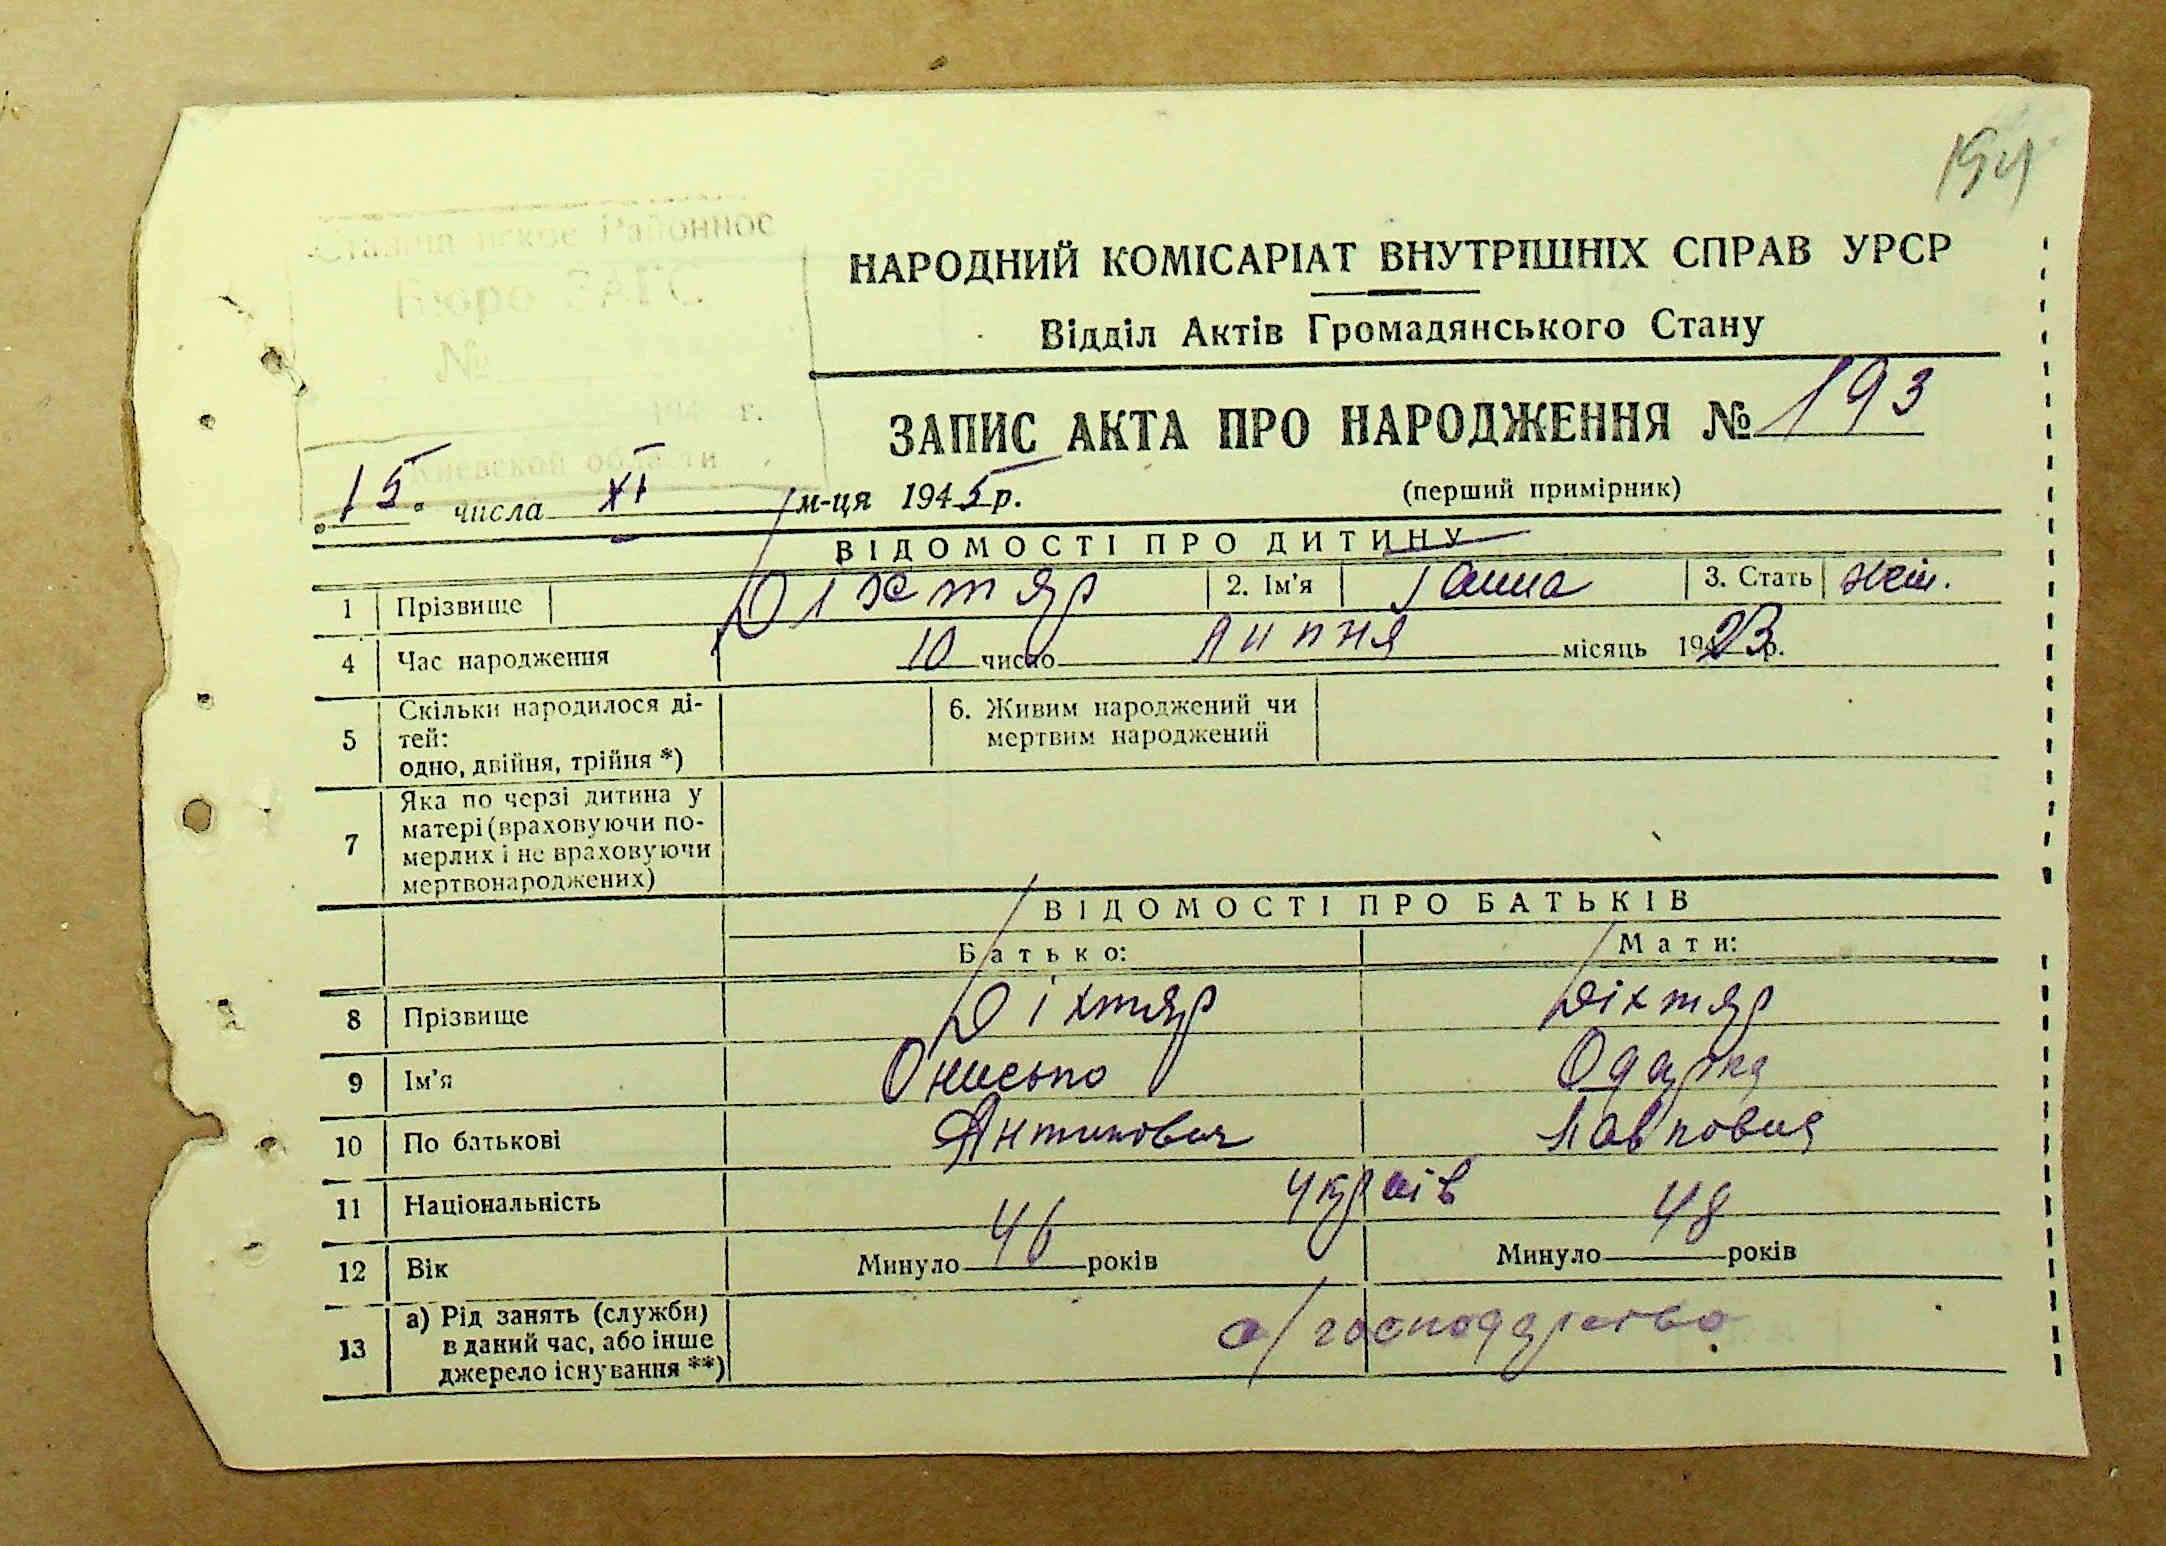 194
Районное
Бюро ЗАГС
№
194 г.
Киевской области
НАРОДНИЙ КОМІСАРІАТ ВНУТРІШНІХ СПРАВ УРСР
Відділ Актів Громадянського Стану
ЗАПИС АКТА ПРО НАРОДЖЕННЯ № 193
15 числа XI м-ця 1945 р.
(перший примірник)
ВІДОМОСТІ ПРО ДИТИНУ
1 Прізвище Діхтяр 2. Ім'я Ганна 3. Стать жін.
4 Час народження 10 число липня місяць 1923 р.
5 Скільки народилося ді-
тей:
одно, двійня, трійня *)
6. Живим народжений чи
мертвим народжений
7 Яка по черзі дитина у
матері (враховуючи по-
мерлих і не враховуючи
мертвонароджених)
ВІДОМОСТІ ПРО БАТЬКІВ
Батько: Мати:
8 Прізвище Діхтяр Діхтяр
9 Ім'я Онисько Одарка
10 По батькові Антипович Павловна
11 Національність україв
12 Вік Минуло 46 років Минуло 48 років
13 а) Рід занять (служби)
в даний час, або інше
джерело існування **)
с/господарство